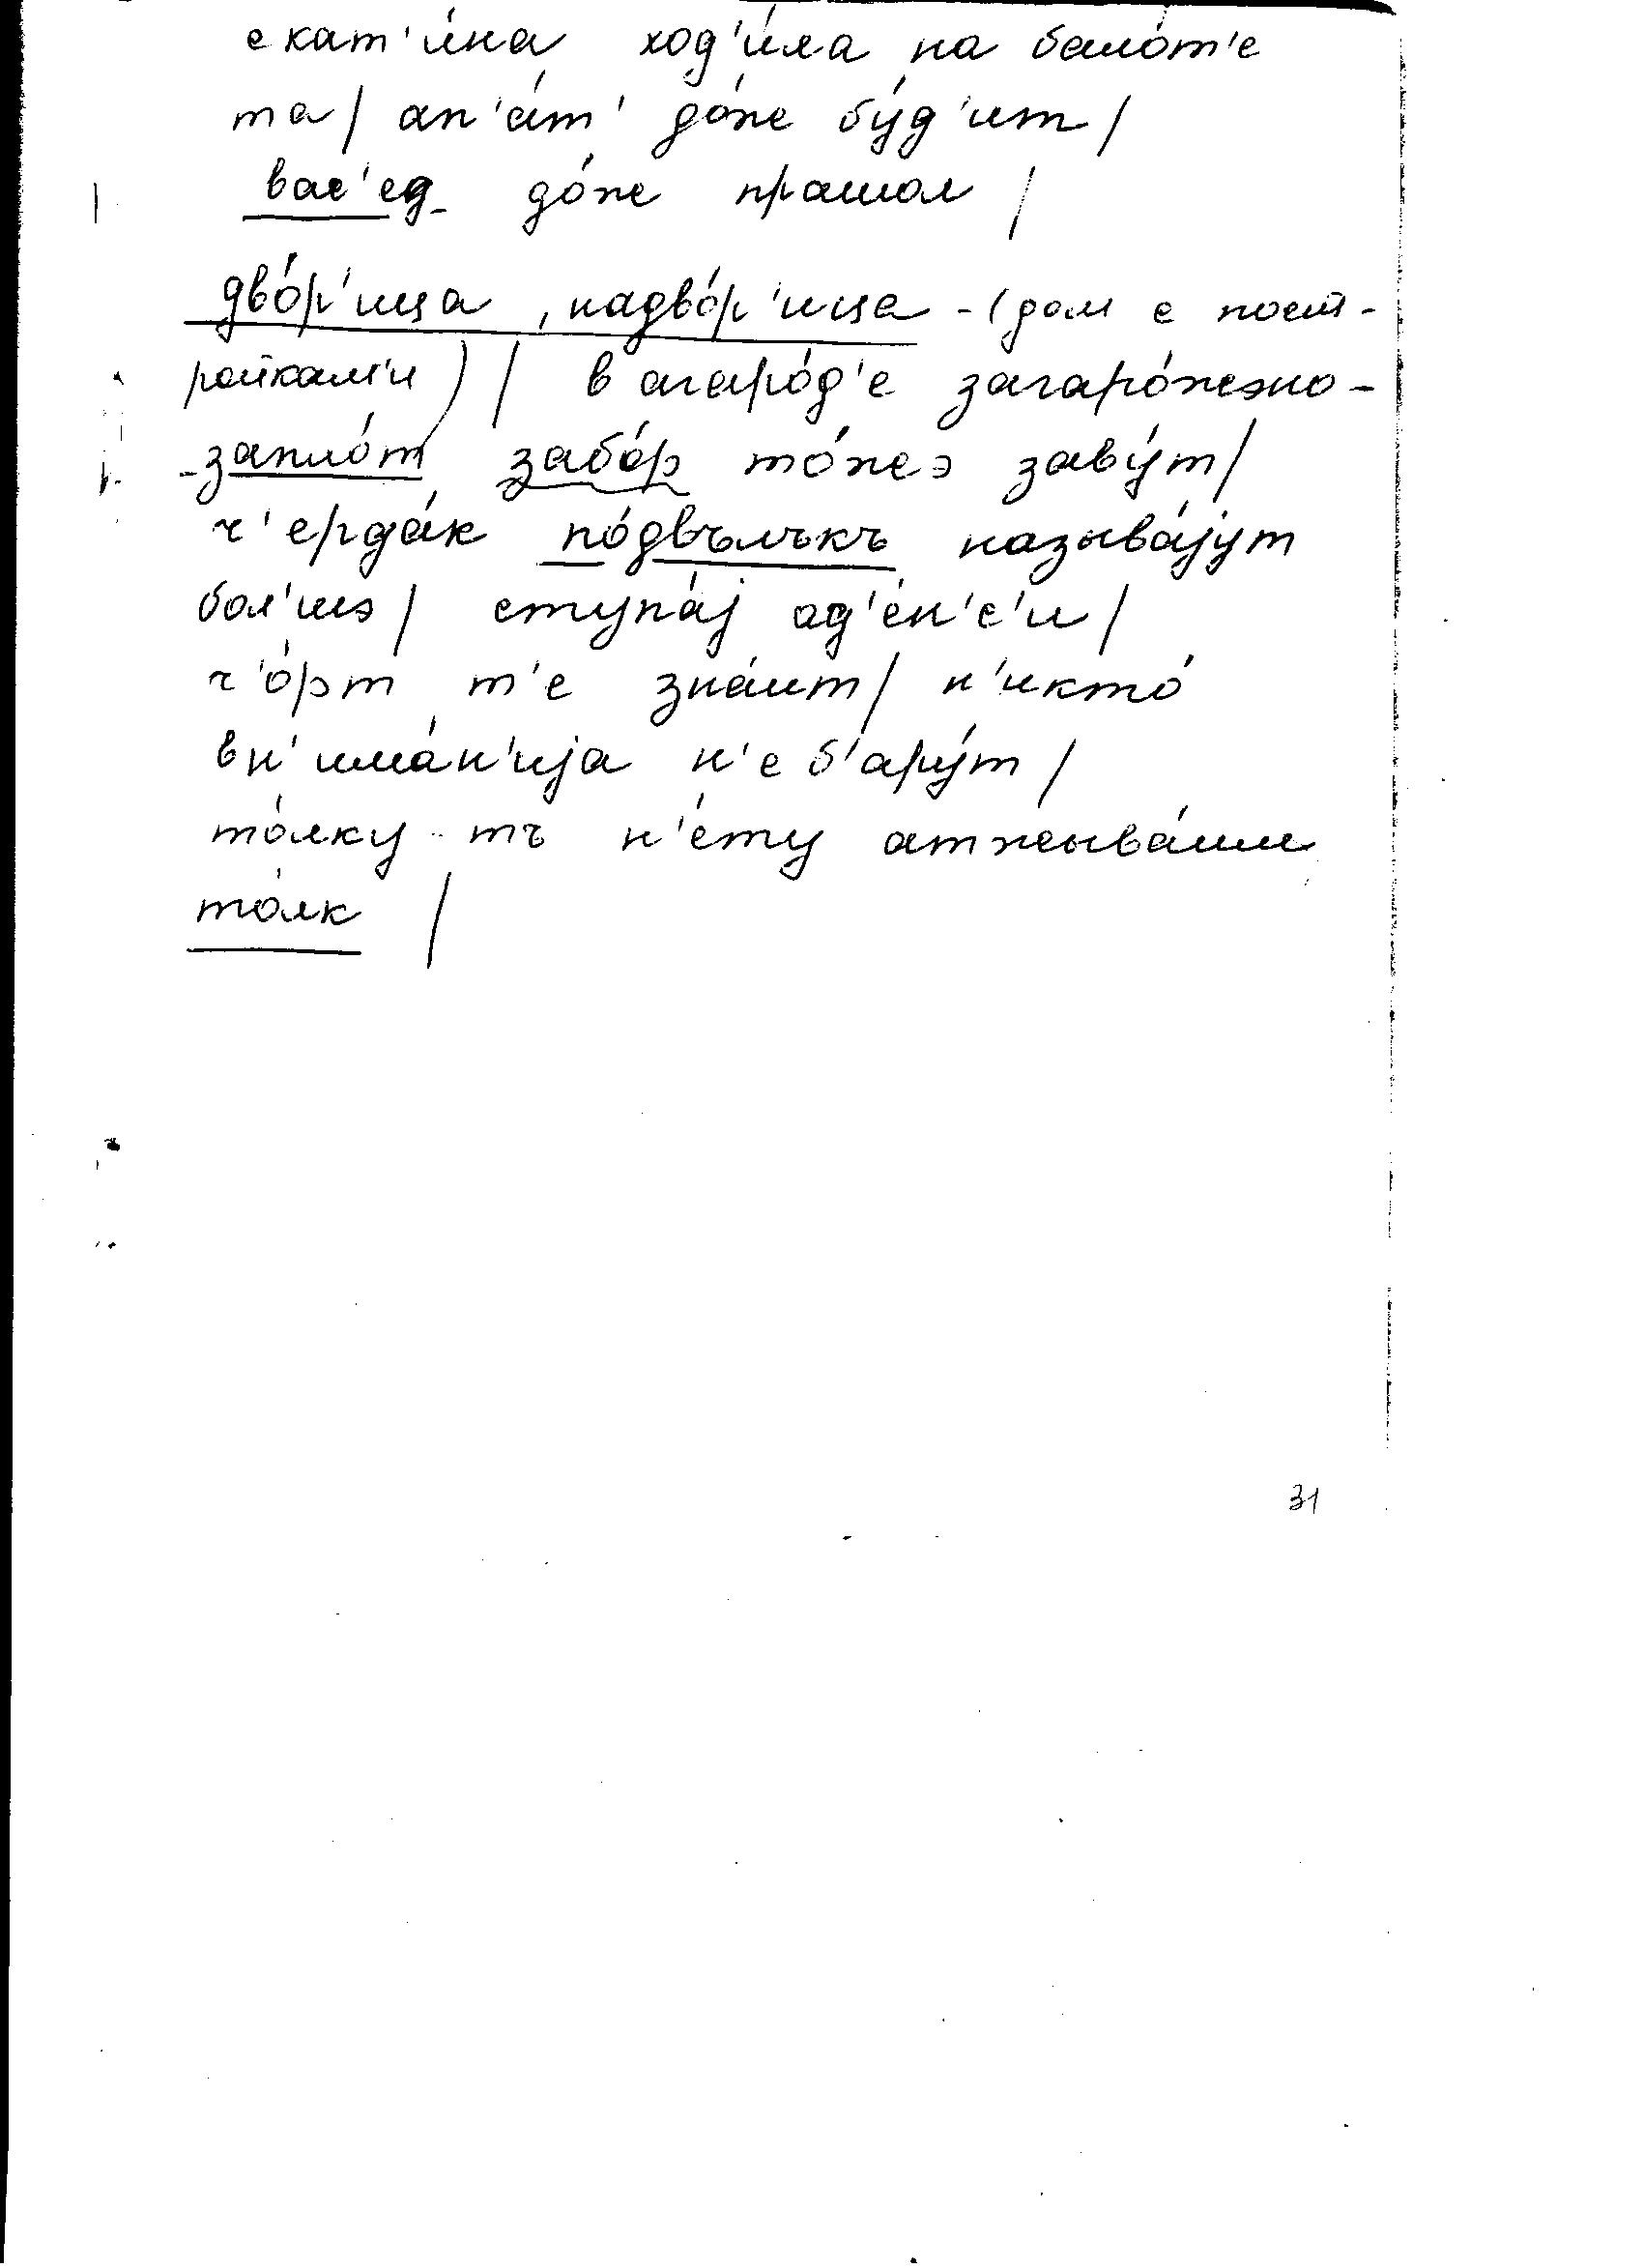 скат'и́на ход'и́ла на бало́т'е
та/ ап'а́т' до́же бу́д'ит/
вас'ед до́же прашол /
дво́р'ища, надво́р'ища - (дом с пост-
ройкам'и) / в агаро́д'е загаро́жэно-
-запло́т забо́р то́жэ заву́т/
ч'ерда́к по́двълъкъ называ́jут
бол'шэ/ ступа́j ад'е́н'с'и/
ч'о́рт т'е зна́ит/ н'икто́
вн'има́н'иjа н'е б'ару́т/
то́лку тъ н'е́ту атжыва́им
то́лк /
31